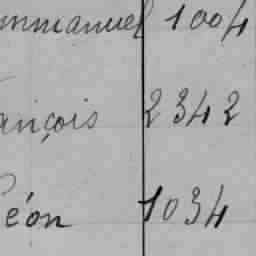 mmanuel 1004
ançois 2342
Léon 1034